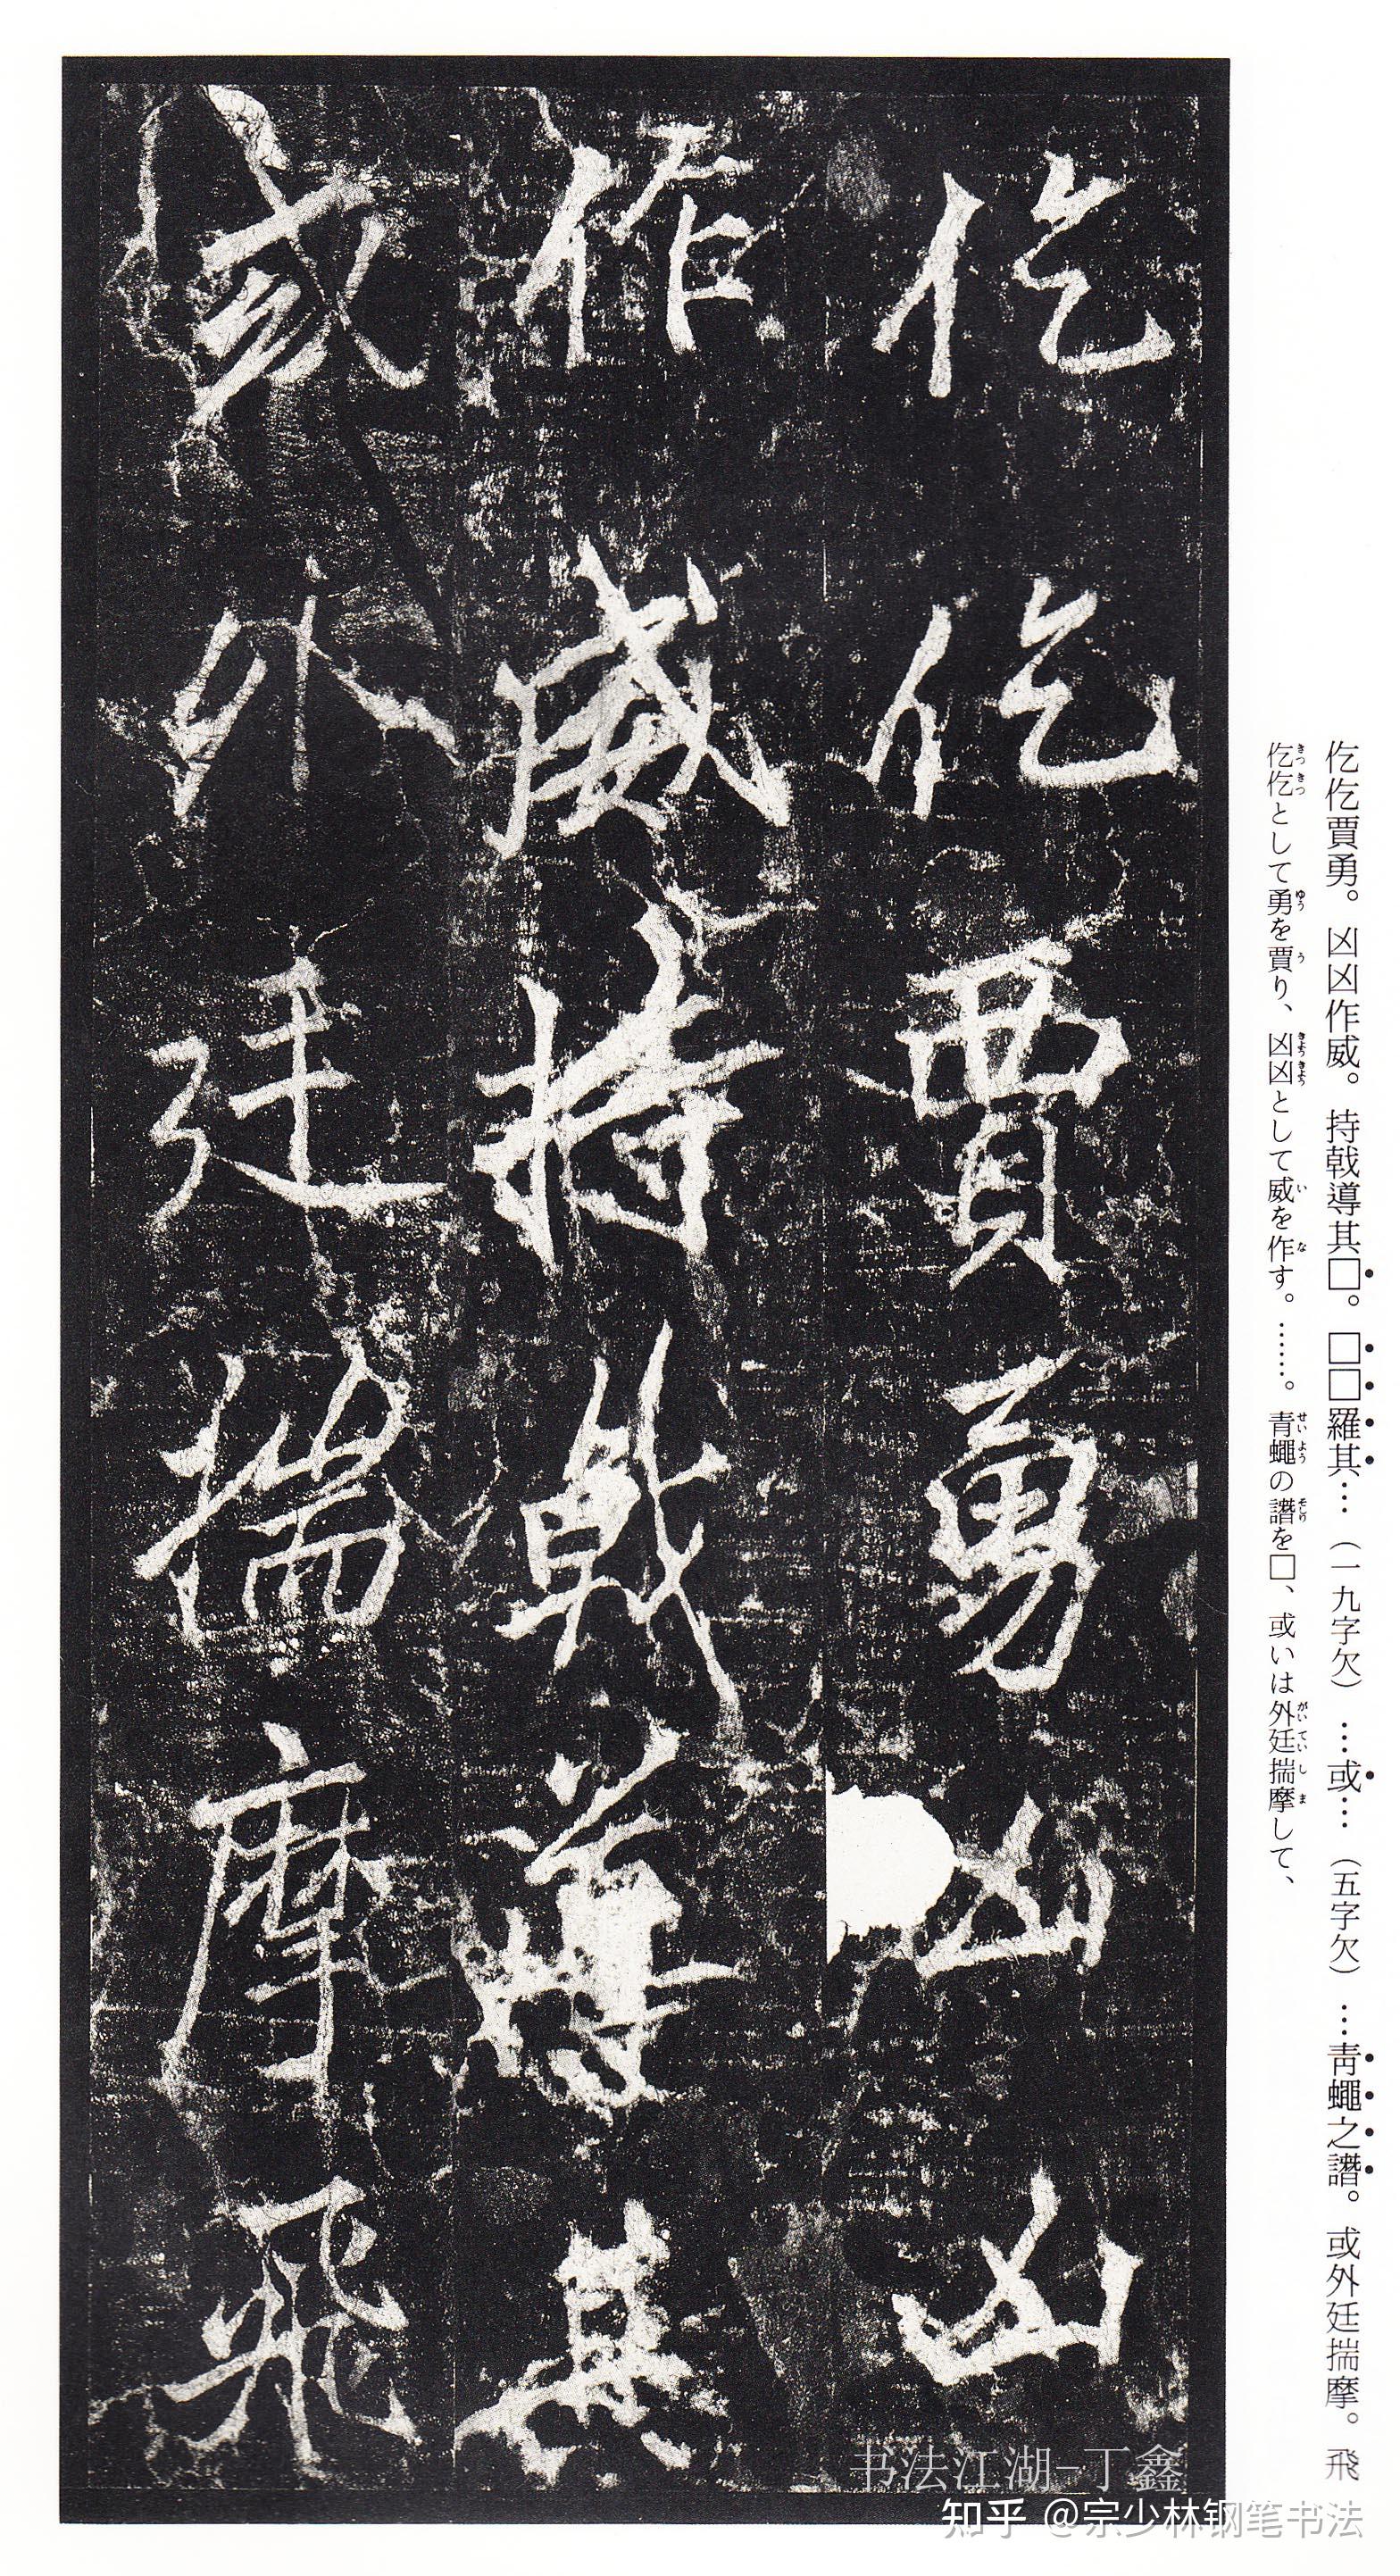 仡仡賈勇。凶凶作威。持戟導其□。□□羅其…（一九字欠）…或…（五字欠）…靑蠅之譖。或外廷揣摩。飛
仡仡として勇を賈り、凶凶として威を作す。……。青蠅の譖を□、或いは外廷揣摩して、
仡仡賈勇凶凶
作威持戟導其
或外廷揣摩飛
书法江湖-丁鑫
知乎 @宗少林钢笔书法